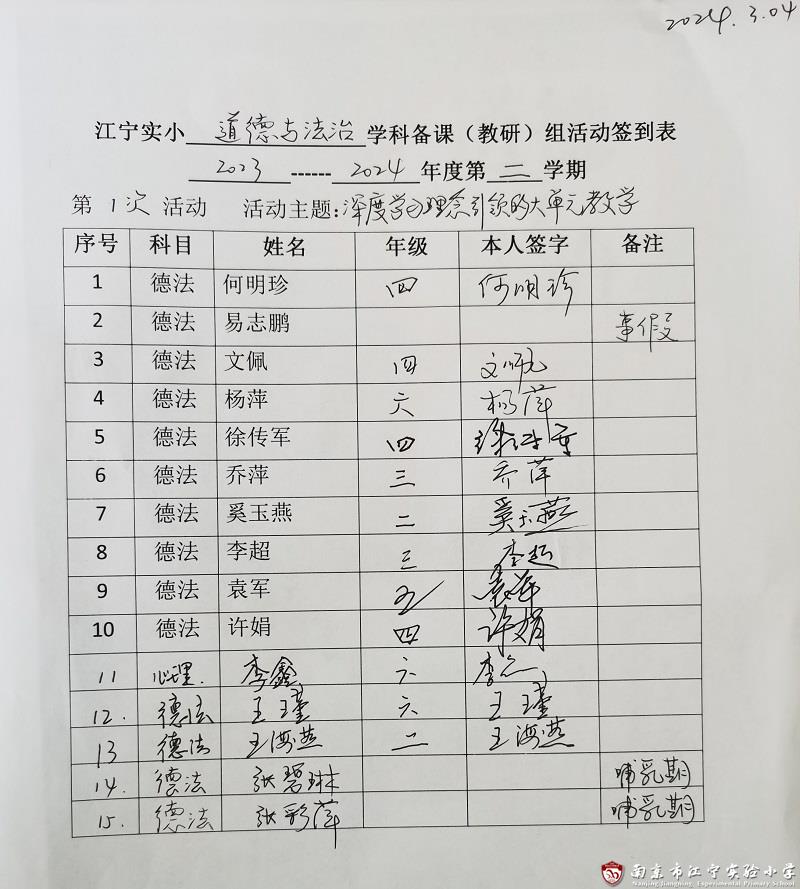 2024.3.04
江宁实小 道德与法治 学科备课（教研）组活动签到表
2023 ------ 2024 年度第 二 学期
第 1次 活动 活动主题：深度学习理念引领的大单元教学
序号 科目 姓名 年级 本人签字 备注
1 德法 何明珍 四 何明珍
2 德法 易志鹏 事假
3 德法 文佩 四 文佩
4 德法 杨萍 六 杨萍
5 德法 徐传军 四 徐传军
6 德法 乔萍 三 乔萍
7 德法 奚玉燕 二 奚玉燕
8 德法 李超 三 李超
9 德法 袁军 五 袁军
10 德法 许娟 四 许娟
11 心理. 李鑫 六 李
12. 德法 王瑾 六 王瑾
13 德法 王海燕 二 王海燕
14. 德法 张碧琳 哺乳期
15. 德法 张彩萍 哺乳期
南京市江宁实验小学
Nanjing Jiangning Experimental Primary School